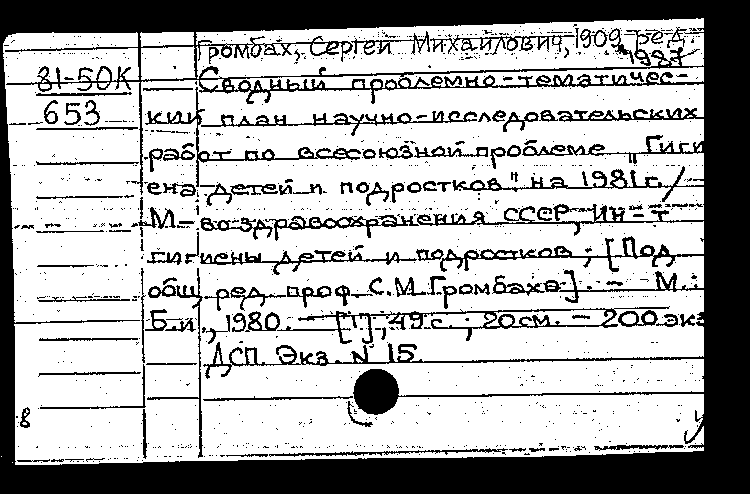 Громбах, Сергей Михайлович, 1909 ред.
1987
81-50К
653
Сводный проблемно-тематичес-
кий план научно-исследовательских
работ по всесоюзной проблеме "Гиги
ена детей и подростков" на 1981 г. /
М-во здравоохранения СССР, Ин-т
гигиены детей и подростков ; [Под
общ. ред. проф. С.М. Громбаха]. - М.:
Б.и., 1980. - [1], 49 с. ; 20 см. - 200 экз
ДСП. Экз. N 15.
8